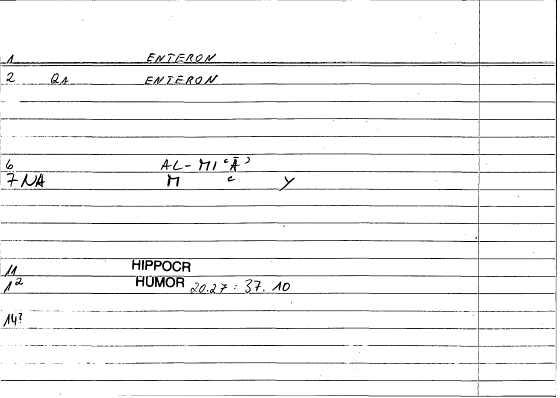 1 ENTERON
2 QA ENTERON
6 AL-MIʿĀʾ
7 NA M ʿ Y
11 HIPPOCR
1² HUMOR 20.27 : 37.10
14?